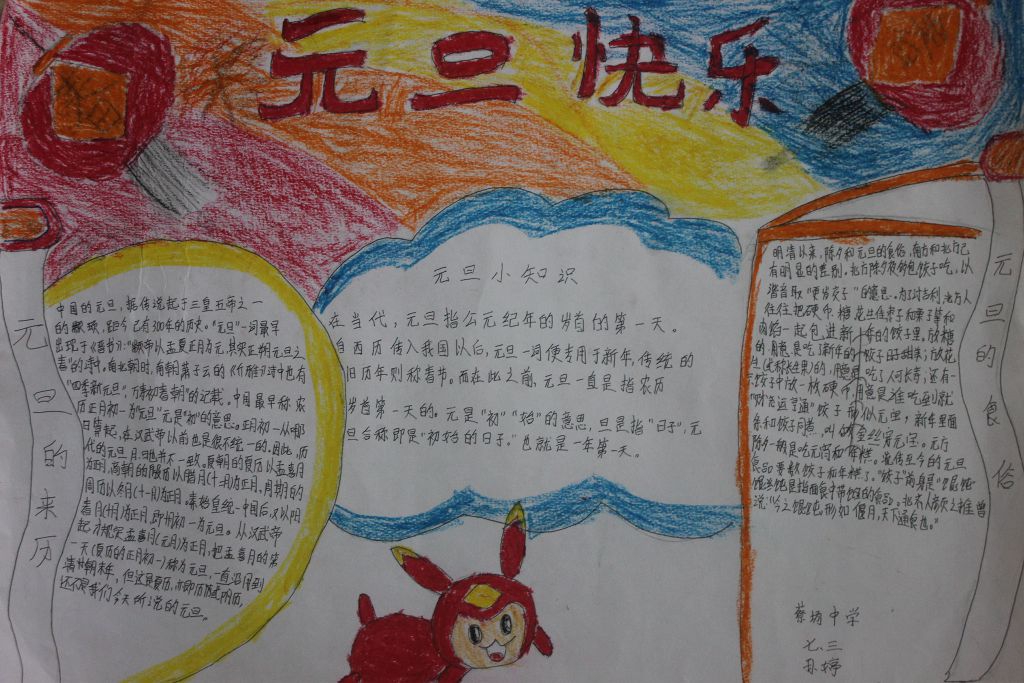 元旦快乐
元旦的来历
中国的元旦，据传说起于三皇五帝之一
的颛顼，距今已有3000年的历史。"元旦"一词最早
出现于《晋书》："颛帝以孟夏正月为元，其实正朔元旦之
春"的诗中。南北朝时，南朝萧子云的《介雅》诗中也有
"四季新元旦，万寿初春朝"的记载。中国最早称农
历正月初一为"元旦"元是"初"的意思。正月初一从哪
日算起，在汉武帝以前也是很不统一的。因此，历
代的元旦月、日也并不一致。夏朝的夏历以孟喜月
为正月，商朝的殷历以腊月(十二月)为正月，周朝的
周历以冬月(十一月)为正月。秦始皇统一中国后，又以阳
春月(十月)为正月，即十月初一为元旦。从汉武帝
起，才规定孟喜月(元月)为正月，把孟喜月的第
一天(夏历的正月初一)称为元旦，一直沿用到
清朝末年。但这是夏历，亦即历或阴历，
还不是我们今天所说的元旦。
元旦小知识
在当代，元旦指公元纪年的岁首的第一天。
自西历传入我国以后，元旦一词便专用于新年，传统的
旧历年则称春节。而在此之前，元旦一直是指农历
岁首第一天的。元是"初""始"的意思，旦是指"日子"，元
旦合称即是"初始的日子。"也就是一年第一天。
元旦的食俗
明清以来，除夕和元旦的食俗，南方和北方已
有明显的差别。北方除夕夜多包饺子吃，以
谐音取"更岁交子"的意思。为了讨吉利，北方人
往往把硬币、糖、花生、枣子和栗子等和
肉馅一起包进新年的饺子里。放糖
的用意是吃了新年的饺子日子甜美；放花
生(或称长生果)的，用意是吃了人可长寿；还有一
饺子中放一枚硬币，用意是谁吃到就
"财运亨通"饺子形似元宝，新年里面
条和饺子同煮，叫做"金丝穿元宝。元
除夕一般是吃元宵和年糕。流传至今的元旦
食品要数饺子和年糕了。"饺子"前身是"馄饨
馄饨是指面食中带馅的食品。北齐人颜之推曾
说："今之馄饨，形如偃月，天下通食也。"
蔡坊中学
七.三
孙婷